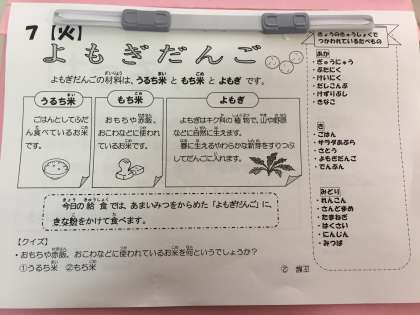 7【火】
よもぎだんご
よもぎだんごの材料は、うるち米 と もち米 と よもぎ です。
うるち米
ごはんとしてふだん食べているお米です。
もち米
おもちや赤飯、おこわなどに使われているお米です。
よもぎ
よもぎはキク科の植物で、山や野原などに自然に生えます。
春に生えるやわらかな新芽をすりつぶしてだんごに入れます。
今日の給食では、あまいみつをからめた「よもぎだんご」に、
きな粉をかけて食べます。
【クイズ】
・おもちや赤飯、おこわなどに使われているお米を何というでしょうか？
①うるち米 ②もち米
きょうのきゅうしょくで
つかわれているたべもの
あか
・ぎゅうにゅう
・ぶたにく
・けいにく
・だしこんぶ
・けずりぶし
・きなこ
き
・ごはん
・サラダあぶら
・さとう
・よもぎだんご
・でんぷん
みどり
・れんこん
・さんどまめ
・たまねぎ
・はくさい
・にんじん
・みつば